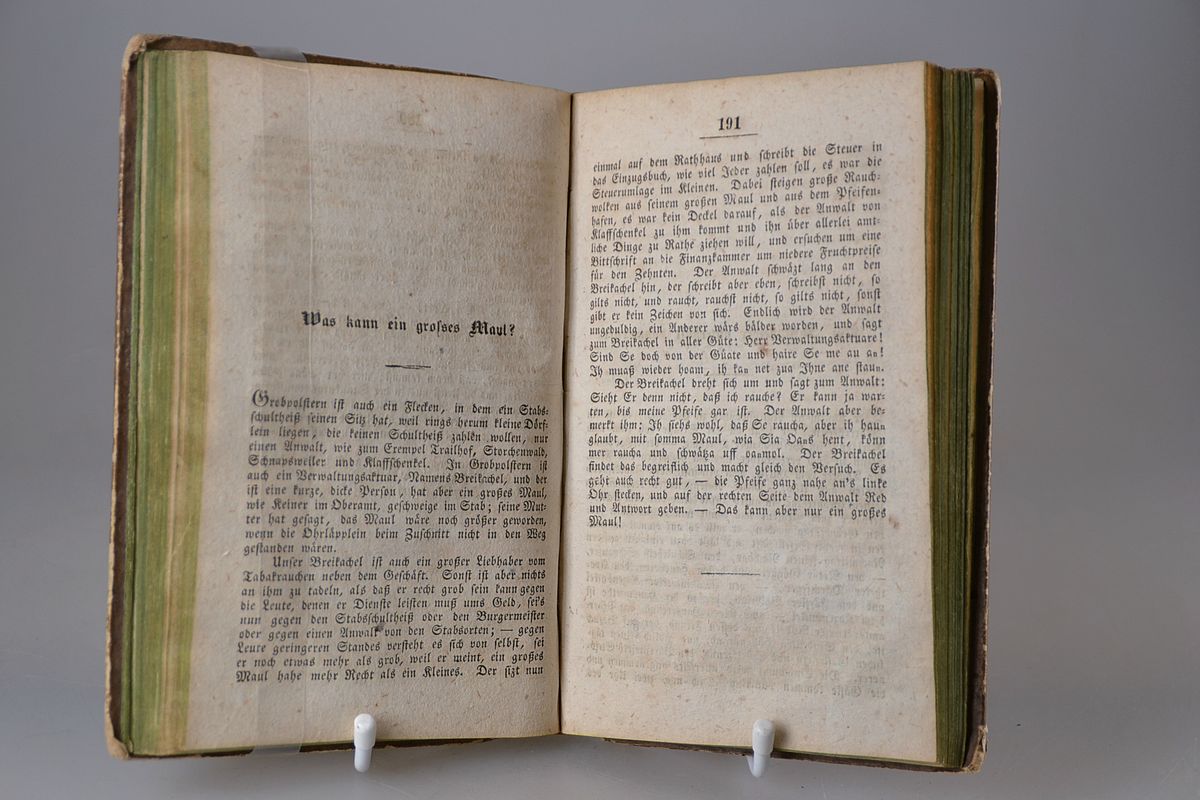 Was kann ein großes Maul?
Grobpolstern ist auch ein Flecken, in dem ein Stabs-
schultheiß seinen Sitz hat, weil rings herum kleine Dörf-
lein liegen, die keinen Schultheiß zahlen wollen, nur
einen Anwalt, wie zum Exempel Trailhof, Storchenwald,
Schnapsweiler und Klaffschenkel. In Grobpolstern ist
auch ein Verwaltungsaktuar, Namens Breikachel, und der
ist eine kurze, dicke Person, hat aber ein großes Maul,
wie Keiner im Oberamt, geschweige im Stab; seine Mut-
ter hat gesagt, das Maul wäre noch größer geworden,
wenn die Ohrläpplein beim Zuschnitt nicht in den Weg
gestanden wären.
Unser Breikachel ist auch ein großer Liebhaber vom
Tabakrauchen neben dem Geschäft. Sonst ist aber nichts
an ihm zu tadeln, als daß er recht grob sein kann gegen
die Leute, denen er Dienste leisten muß ums Geld, sei's
nun gegen den Stabsschultheiß oder den Burgermeister
oder gegen einen Anwalt von den Stabsorten; — gegen
Leute geringeren Standes versteht es sich von selbst, sei
er noch etwas mehr als grob, weil er meint, ein großes
Maul habe mehr Recht als ein Kleines. Der sizt nun
191
einmal auf dem Rathhaus und schreibt die Steuer in
das Einzugsbuch, wie viel Jeder zahlen soll, es war die
Steuerumlage im Kleinen. Dabei steigen große Rauch-
wolken aus seinem großen Maul und aus dem Pfeifen-
hafen, es war kein Deckel darauf, als der Anwalt von
Klaffschenkel zu ihm kommt und ihn über allerlei amt-
liche Dinge zu Rathe ziehen will, und ersuchen um eine
Bittschrift an die Finanzkammer um niedere Fruchtpreise
für den Zehnten. Der Anwalt schwäzt lang an den
Breikachel hin, der schreibt aber eben, schreibst nicht, so
gilts nicht, und raucht, rauchst nicht, so gilts nicht, sonst
gibt er kein Zeichen von sich. Endlich wird der Anwalt
ungeduldig, ein Anderer wärs bälder worden, und sagt
zum Breikachel in aller Güte: Herr Verwaltungsaktuare!
Sind Se doch von der Güate und haire Se me au an!
Ih muaß wieder hoam, ih kan net zua Ihne ane staun.
Der Breikachel dreht sich um und sagt zum Anwalt:
Sieht Er denn nicht, daß ich rauche? Er kann ja war-
ten, bis meine Pfeife gar ist. Der Anwalt aber be-
merkt ihm: Ih siehs wohl, daß Se raucha, aber ih haun
glaubt, mit somma Maul, wia Sia Oans hent, könn
mer raucha und schwätza uff oanmol. Der Breikachel
findet das begreiflich und macht gleich den Versuch. Es
geht auch recht gut, — die Pfeife ganz nahe an's linke
Ohr stecken, und auf der rechten Seite dem Anwalt Red
und Antwort geben. — Das kann aber nur ein großes
Maul!